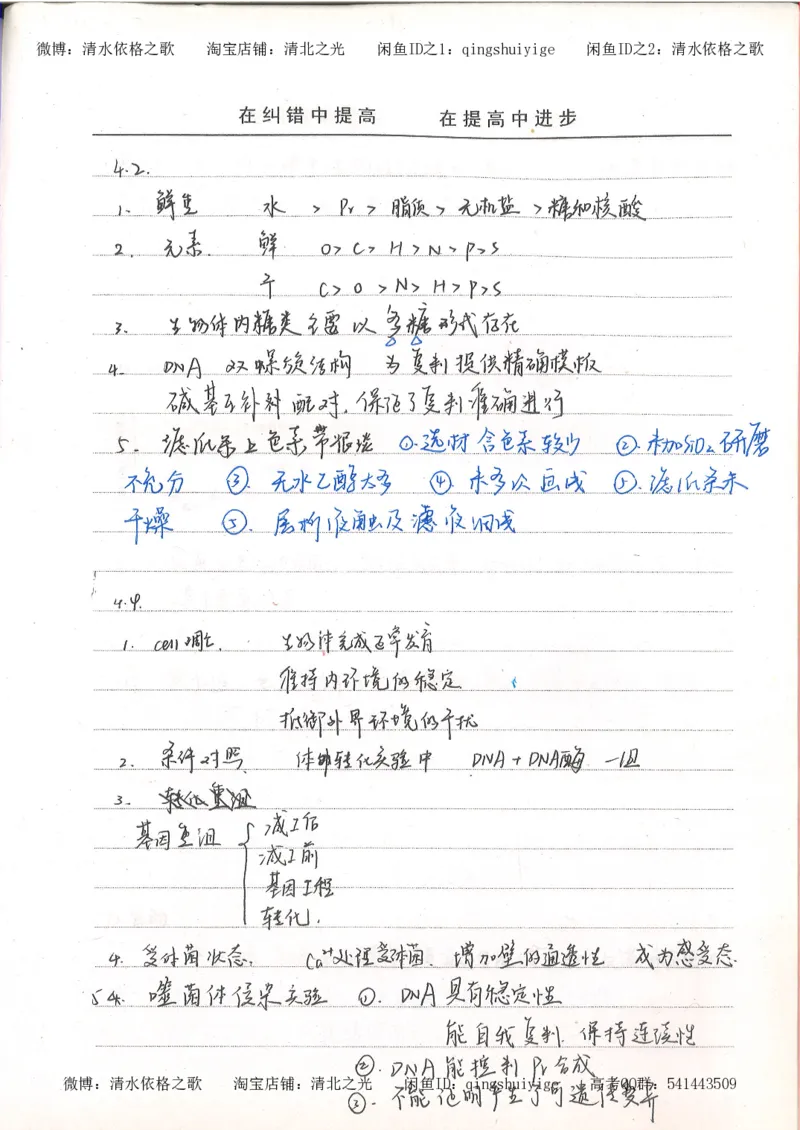 微博：清水依格之歌 淘宝店铺：清北之光 闲鱼ID之1：qingshuiyige 闲鱼ID之2：清水依格之歌
在纠错中提高 在提高中进步
4.2.
1、鲜重 水 > Pr > 脂质 > 无机盐 > 糖和核酸
2. 元素. 鲜 O > C > H > N > P > S
干 C > O > N > H > P > S
3. 生物体内糖类主要以多糖形式存在
4. DNA 双螺旋结构 为复制提供精确模板
碱基互补配对，保证了复制准确进行
5. 滤纸条上色素带很淡 ①.选材含色素较少 ②.未加SiO2研磨
不充分 ③ 无水乙醇太多 ④ 未多次画线 ⑤.滤纸条未
干燥 ⑤. 层析液触及滤液细线
4.4.
1. cell凋亡. 生物体完成正常发育
维持内环境的稳定
抵御外界环境的干扰
2. 条件对照 体外转化实验中 DNA + DNA酶 一组
3. 转化重组
基因重组 { 减I后
减I前
基因工程
转化.
4. 受体菌状态. Ca²⁺处理受体菌. 增加壁的通透性 成为感受态.
5 4. 噬菌体侵染实验 ①. DNA具有稳定性
能自我复制. 保持连续性
②. DNA能控制Pr合成
微博：清水依格之歌 淘宝店铺：清北之光 闲鱼ID：qingshuiyige 高考QQ群：541443509
③. 不能证明产生了可遗传变异